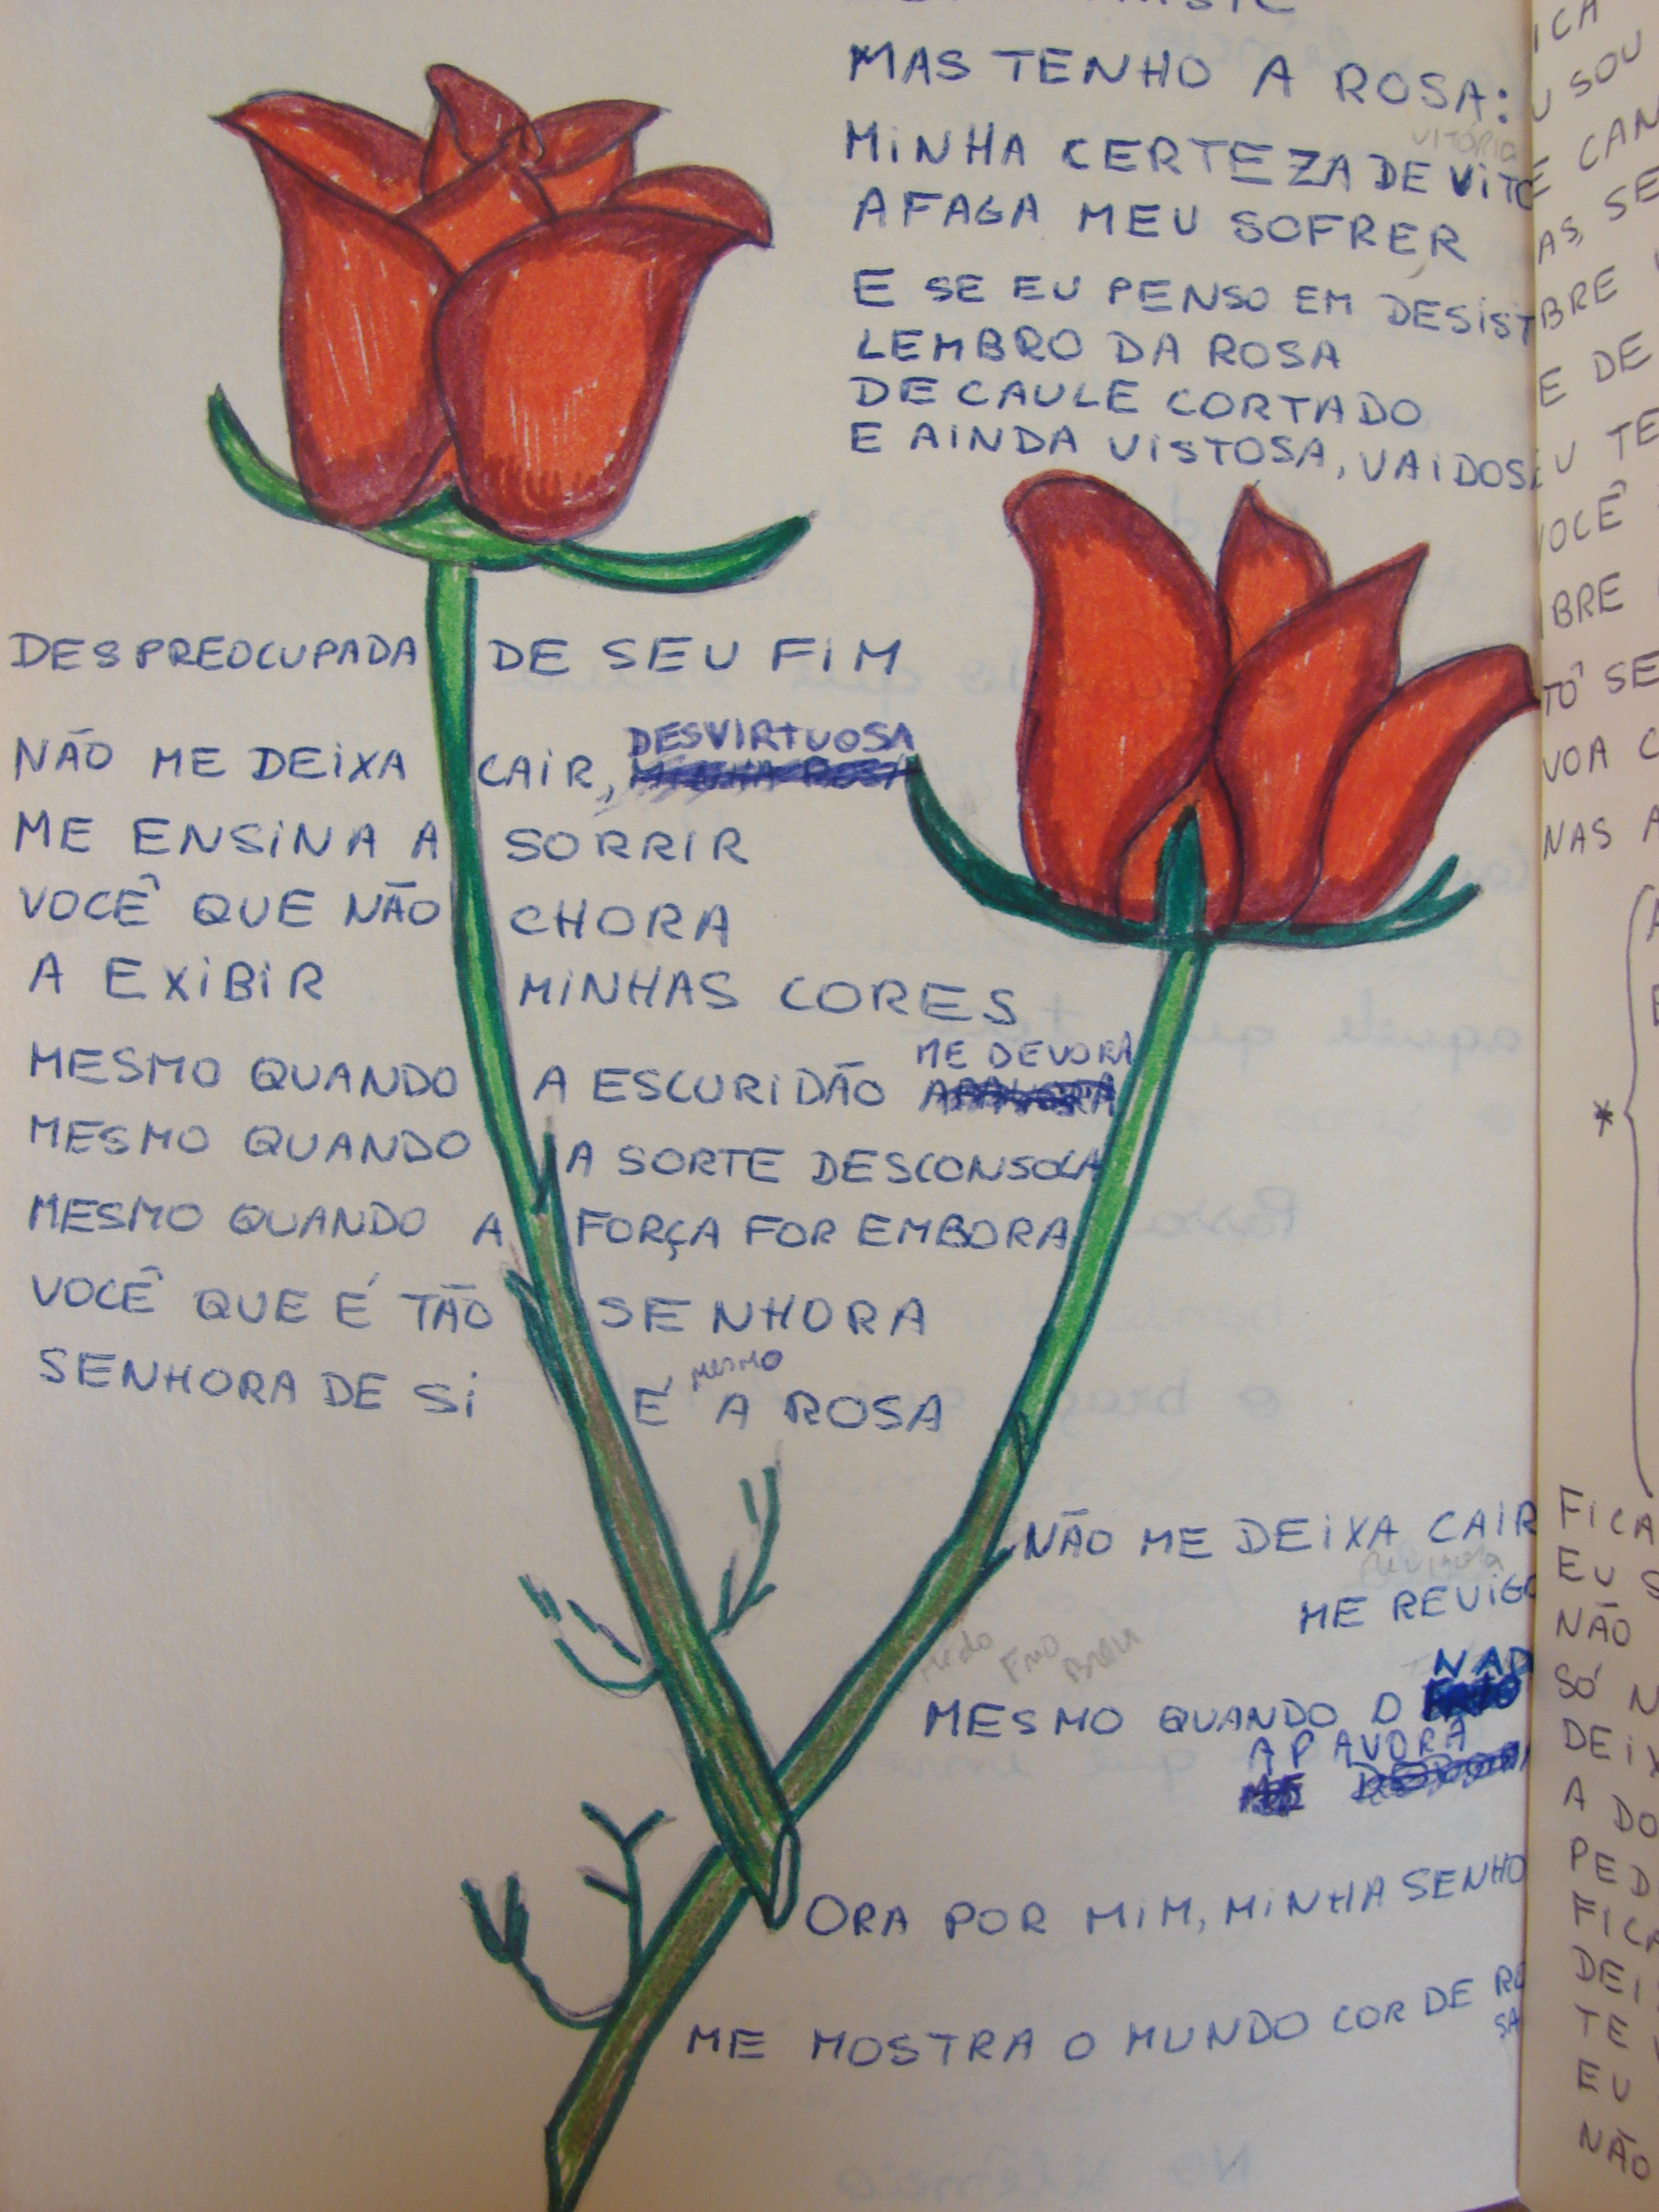 MAS TENHO A ROSA:
VITÓRIA
MINHA CERTEZA DE VITO
AFAGA MEU SOFRER
E SE EU PENSO EM DESIST
LEMBRO DA ROSA
DE CAULE CORTADO
E AINDA VISTOSA, VAIDOS
DESPREOCUPADA DE SEU FIM
DESVIRTUOSA
NÃO ME DEIXA CAIR, MINHA ROSA
ME ENSINA A SORRIR
VOCÊ QUE NÃO CHORA
A EXIBIR MINHAS CORES
ME DEVORA
MESMO QUANDO A ESCURIDÃO APAVORA
MESMO QUANDO A SORTE DESCONSOLA
MESMO QUANDO A FORÇA FOR EMBORA
VOCÊ QUE É TÃO SENHORA
mesmo
SENHORA DE SI É A ROSA
NÃO ME DEIXA CAIR
revigora
ME REVIGO
medo Frio Breu
NAD
MESMO QUANDO O
APAVORA
ME
ORA POR MIM, MINHA SENHO
ME MOSTRA O MUNDO COR DE RO
SA
ICA
U SOU
E CAN
AS, SE
BRE
E DE
EU TE
VOCÊ
BRE
TÔ SE
VOA C
NAS A
*
FICA
EU S
NÃO
SÓ N
DEIX
A DO
PED
FICA
DEI
TE
EU
NÃO